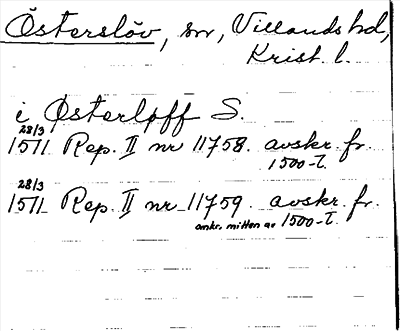 Österslöv, sn, Villands hd,
Krist. l.
i Østerløff S.
28/3
1511 Rep. II nr 11758. avskr. fr.
1500-t.
28/3
1511 Rep. II nr 11759. avskr. fr.
omkr. mitten av 1500-t.